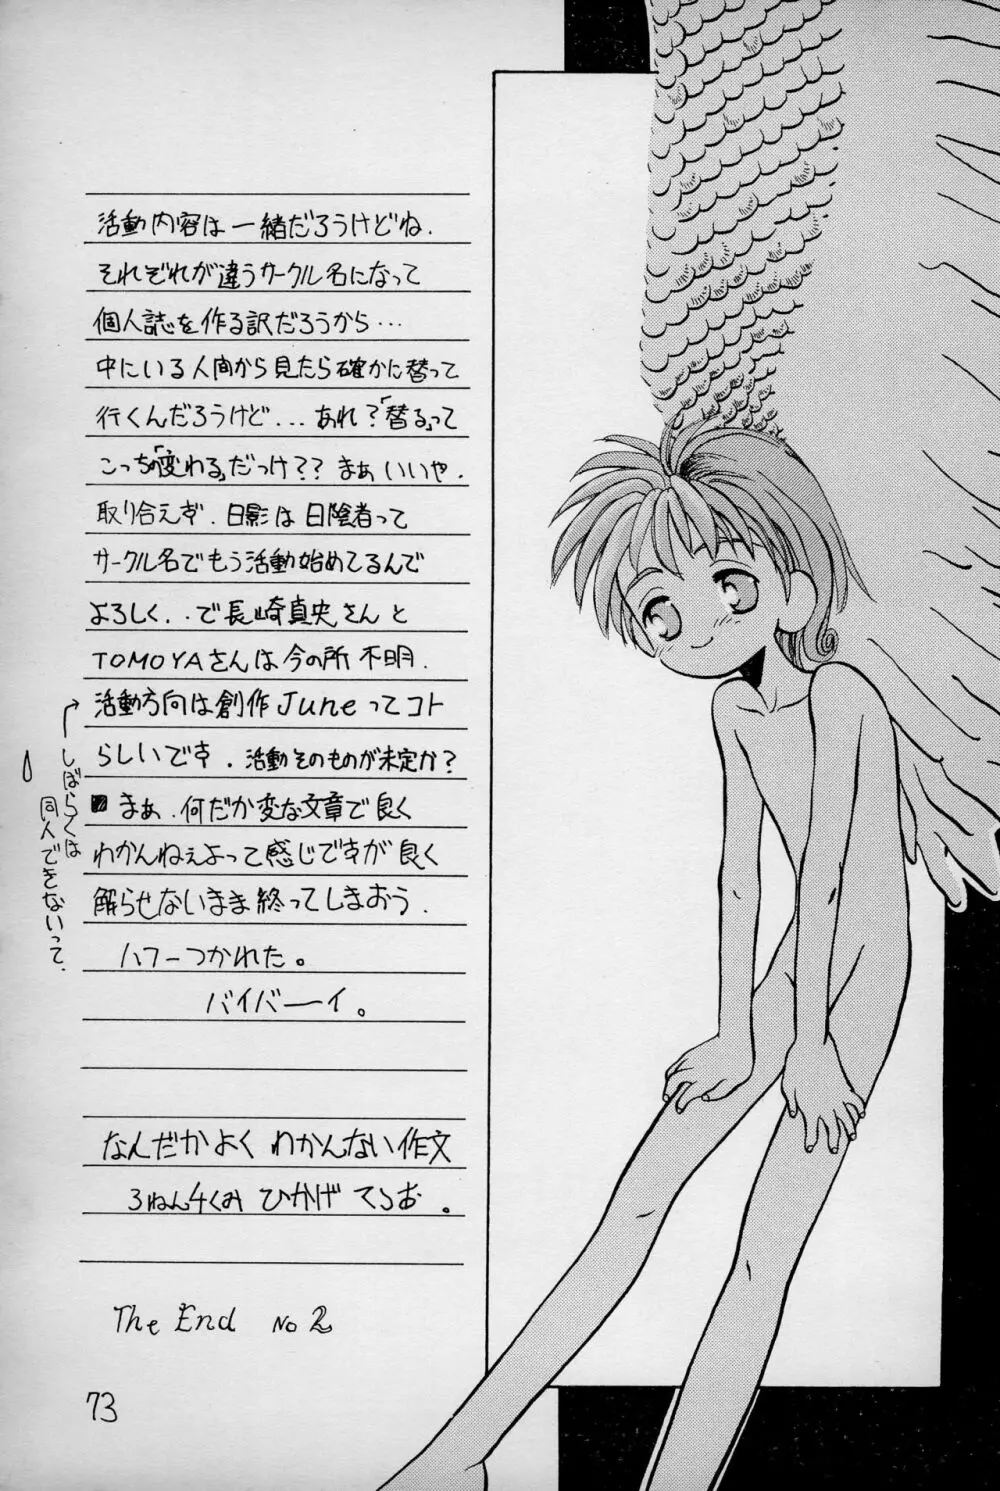 活動内容は一緒だろうけどね.
それぞれが違うサークル名になって
個人誌を作る訳だろうから…
中にいる人間から見たら確かに替って
行くんだろうけど…あれ?「替る」って
こっちの「変わる」だっけ??まぁいいや.
取り合えず.日影は日陰者って
サークル名でもう活動始めてるんで
よろしく..で長崎真央さんと
TOMOYAさんは今の所不明.
活動方向は創作Juneってコト
らしいです.活動そのものが未定か?
→しばらくは
同人できないって.
まぁ.何だか変な文章で良く
わかんねぇよって感じですが良く
解らせないまま終ってしまおう.
ハフーつかれた。
バイバーイ。
なんだかよくわかんない作文
3ねん4くみ ひかげ てらお。
The End No 2
73